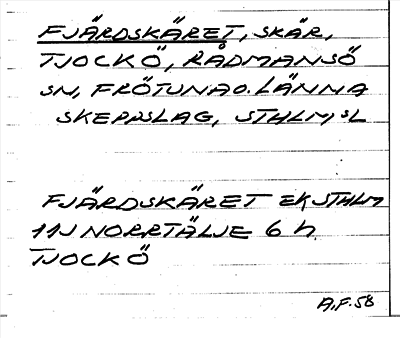 FJÄRDSKÄRET, SKÄR,
TJOCKÖ, RÅDMANSÖ
SN, FRÖTUNA O. LÄNNA
SKEPPSLAG, STHLM SL
FJÄRDSKÄRET EK STHLM
11J NORRTÄLJE 6 h
TJOCKÖ
A.F. 58